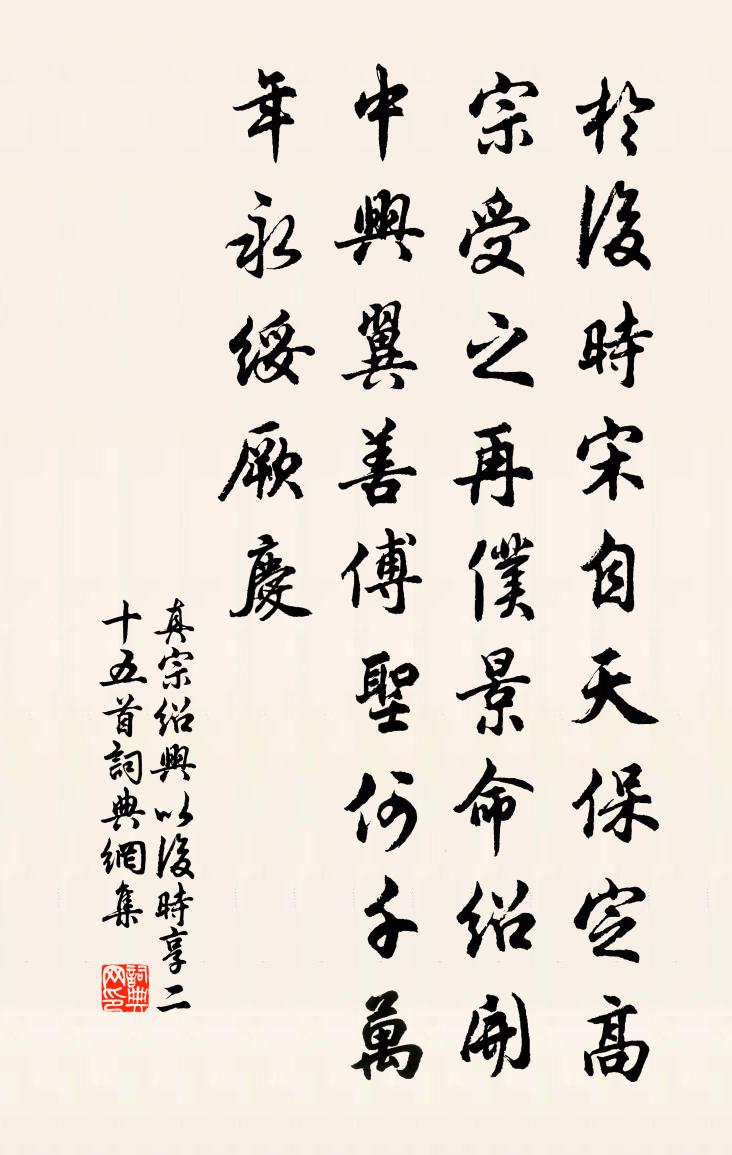 於後時宋自天保定高
宗受之再僕景命紹開
中興翼善傅聖何千萬
年永綏厥慶
真宗紹興以後時享二
十五首詞典網集
詞典網印